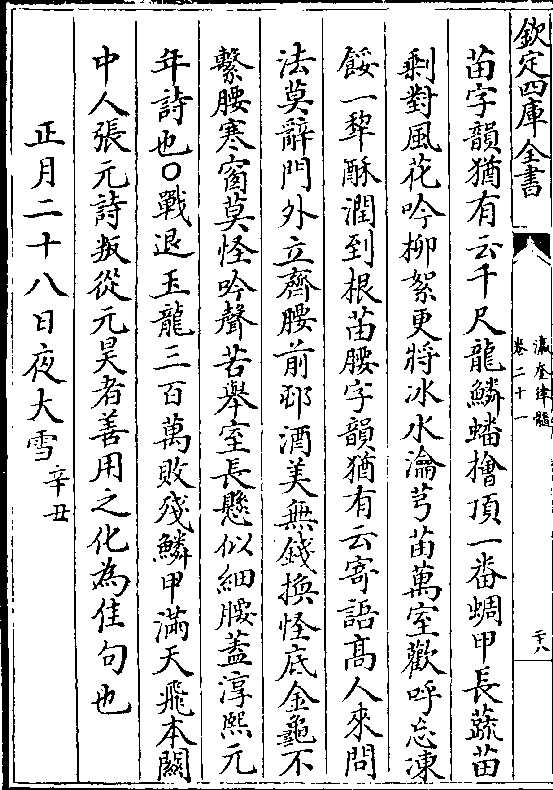 欽定四庫全書
瀛奎律髓
卷二十一
二十八
苗字韻猶有云千尺龍鱗蟠檜頂一番蜩甲長蔬苗
剩對風花吟柳絮更將冰水瀹芎苗萬室歡呼忘凍
餒一犂酥潤到根苗腰字韻猶有云寄語高人來問
法莫辭門外立齊腰前邨酒美無錢換怪底金龜不
繫腰寒窗莫怪吟聲苦舉室長懸似細腰蓋淳熙元
年詩也○戰退玉龍三百萬敗殘鱗甲滿天飛本關
中人張元詩叛從元昊者善用之化為佳句也
正月二十八日夜大雪辛丑